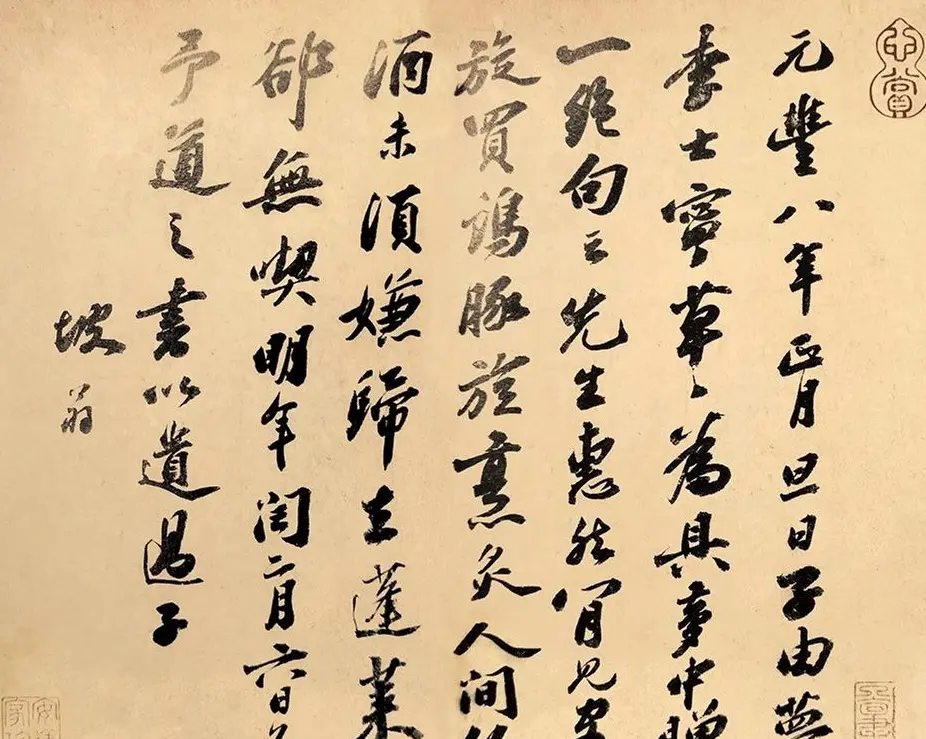 元豐八年正月旦日子由夢
李士寧草〻為具夢中贈
一絕句云先生惠然肯見客
旋買雞豚旋烹炙人間
酒未須嫌歸去蓬萊
卻無喫明年閏二月六日為
予道之書以遺過子
坡翁
心賞